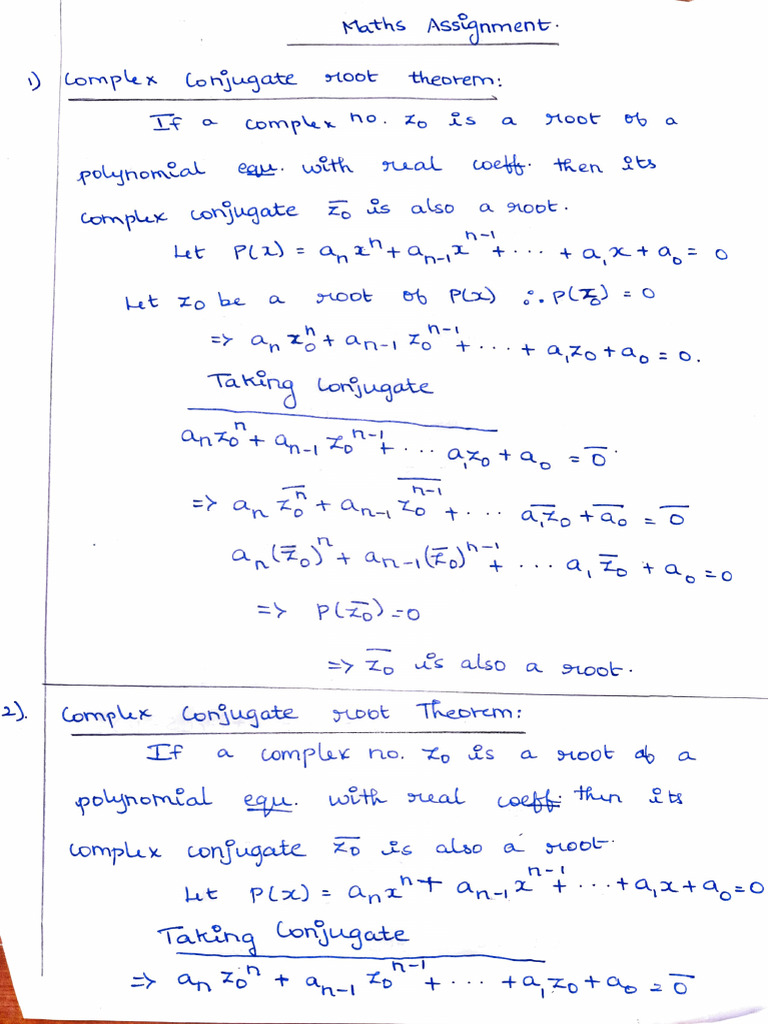 Maths Assignment.
1) Complex Conjugate root theorem:
If a complex no. z₀ is a root of a
polynomial equ. with real coeff. then its
complex conjugate z̅₀ is also a root.
Let P(x) = aₙxⁿ + aₙ₋₁xⁿ⁻¹ + ··· + a₁x + a₀ = 0
Let z₀ be a root of P(x) ∴ P(z₀) = 0
=> aₙ z₀ⁿ + aₙ₋₁ z₀ⁿ⁻¹ + ··· + a₁z₀ + a₀ = 0.
Taking Conjugate
$\overline{a_n z_0^n + a_{n-1} z_0^{n-1} + \cdots a_1 z_0 + a_0} = \overline{0}$
=> $a_n \overline{z_0^n} + a_{n-1} \overline{z_0^{n-1}} + \cdots \overline{a_1 z_0} + \overline{a_0} = \overline{0}$
aₙ(z̅₀)ⁿ + aₙ₋₁(z̅₀)ⁿ⁻¹ + ··· a₁ z̅₀ + a₀ = 0
=> P(z̅₀) = 0
=> z̅₀ is also a root.
2). Complex Conjugate root Theorem:
If a complex no. z₀ is a root of a
polynomial equ. with real coeff. then its
complex conjugate z̅₀ is also a root.
Let P(x) = aₙxⁿ + aₙ₋₁xⁿ⁻¹ + ··· + a₁x + a₀ = 0
Taking Conjugate
=> $\overline{a_n z_0^n + a_{n-1} z_0^{n-1} + \cdots + a_1 z_0 + a_0} = \overline{0}$